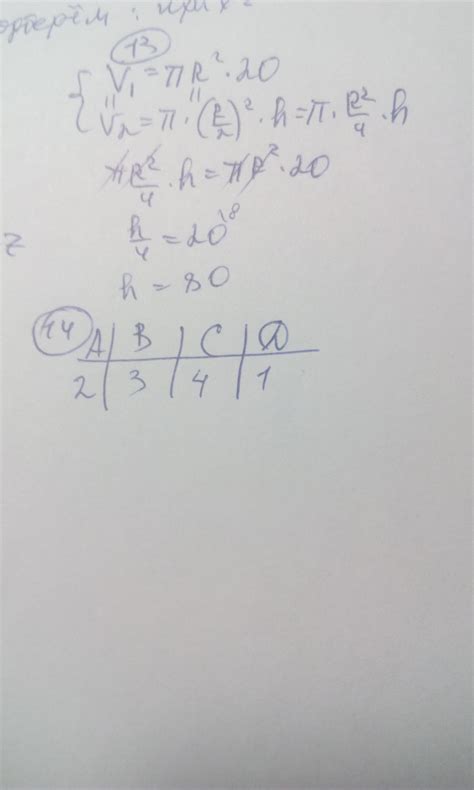 при х
13
V₁ = πR² · 20
V₂ = π · (R/2)² · h = π · R²/4 · h
πR²/4 · h = πR² · 20
h/4 = 20 \8
z
h = 80
14
A | B | C | D
2 | 3 | 4 | 1